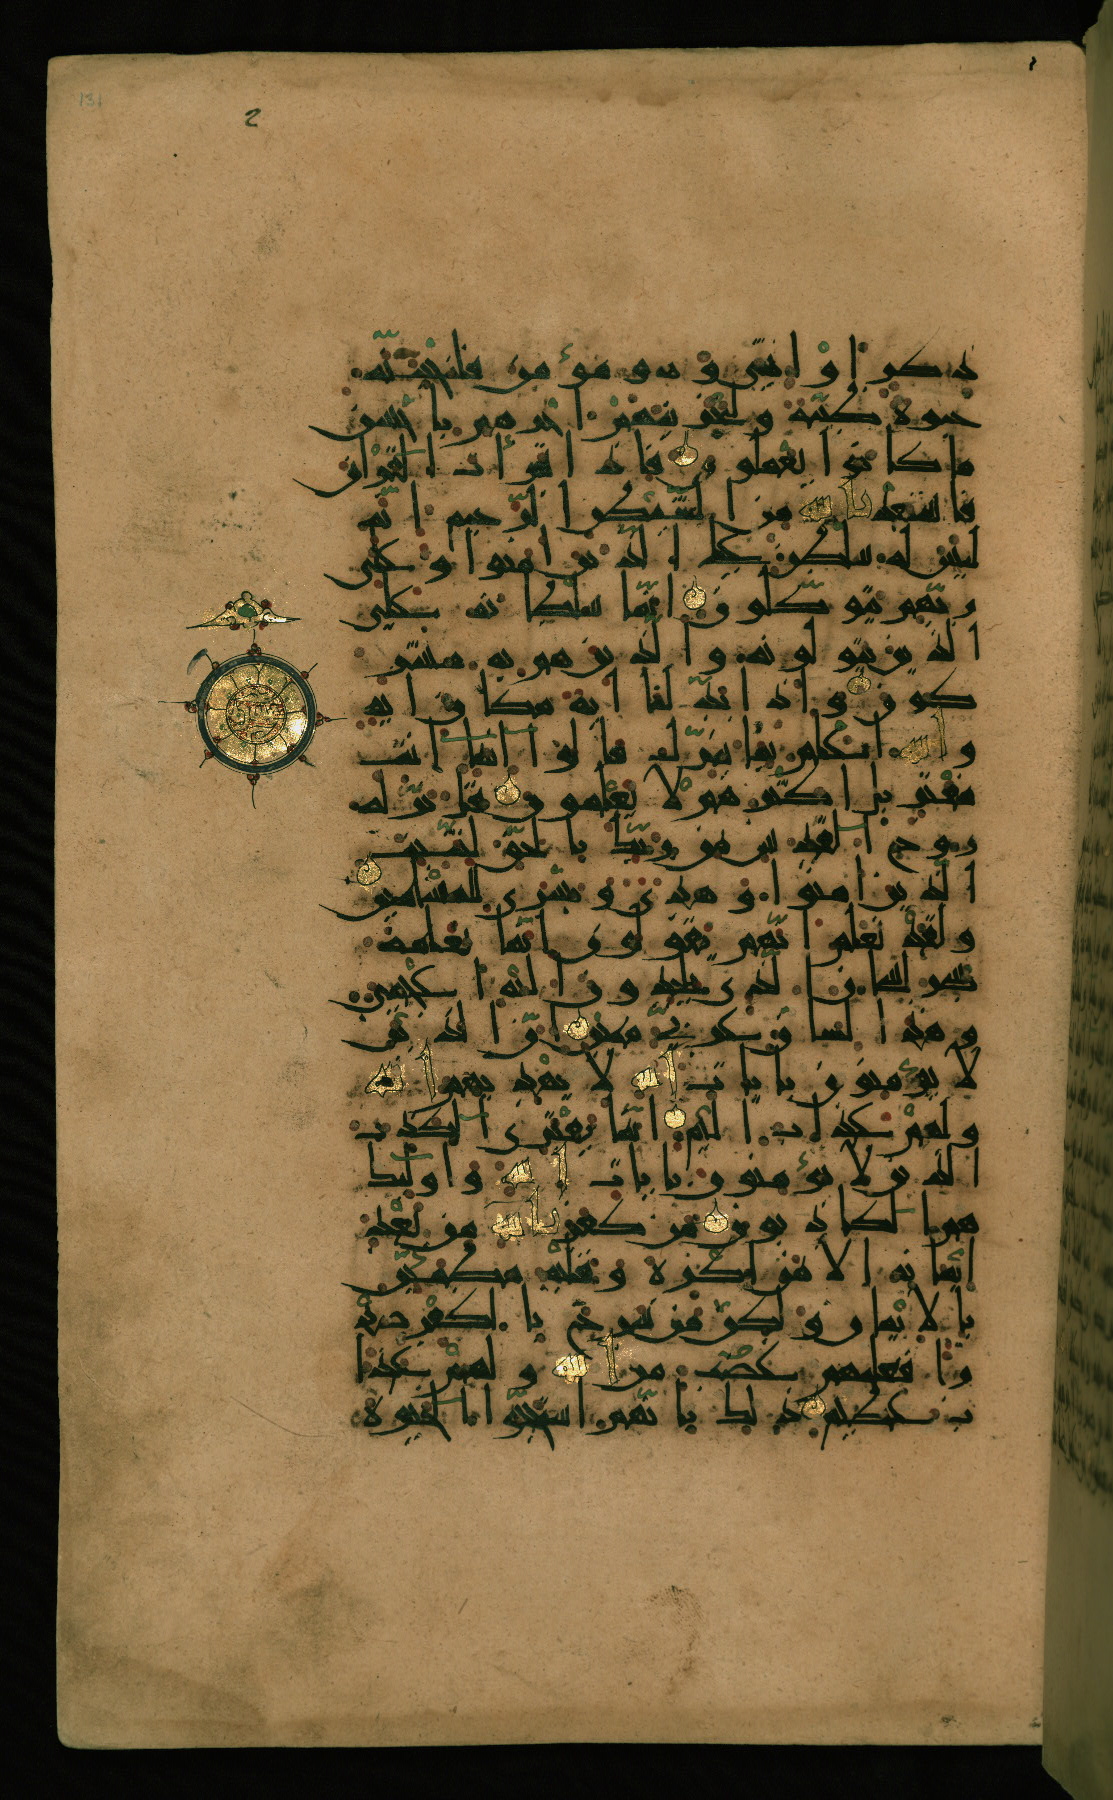 131
2
ذكر او انثى و هو مؤمن فلنحيينه
حيوة طيبة ولنجزينهم اجرهم باحسن
ما كانوا يعملون فاذا قرأت القرآن
فاستعذ بالله من الشيطن الرجيم انه
ليس له سلطن على الذين امنوا وعلى
ربهم يتوكلون انما سلطانه على
الذين يتولونه والذين هم به مشر
كون واذا بدلنا اية مكان اية
والله اعلم بما ينزل قالوا انما انت
مفتر بل اكثرهم لا يعلمون قل نزله
روح القدس من ربك بالحق ليثبت
الذين امنوا وهدى وبشرى للمسلمين
ولقد نعلم انهم يقولون انما يعلمه
بشر لسان الذى يلحدون اليه اعجمى
وهذا لسان عربى مبين ان الذين
لا يؤمنون بايات الله لا يهديهم الله
ولهم عذاب اليم انما يفترى الكذب
الذين لا يؤمنون بايات الله واولئك
هم الكاذبون من كفر بالله من بعد
ايمانه الا من اكره وقلبه مطمئن
بالايمان ولكن من شرح بالكفر صد
را فعليهم غضب من الله ولهم عذا
ب عظيم ذلك بانهم استحبوا الحيوة